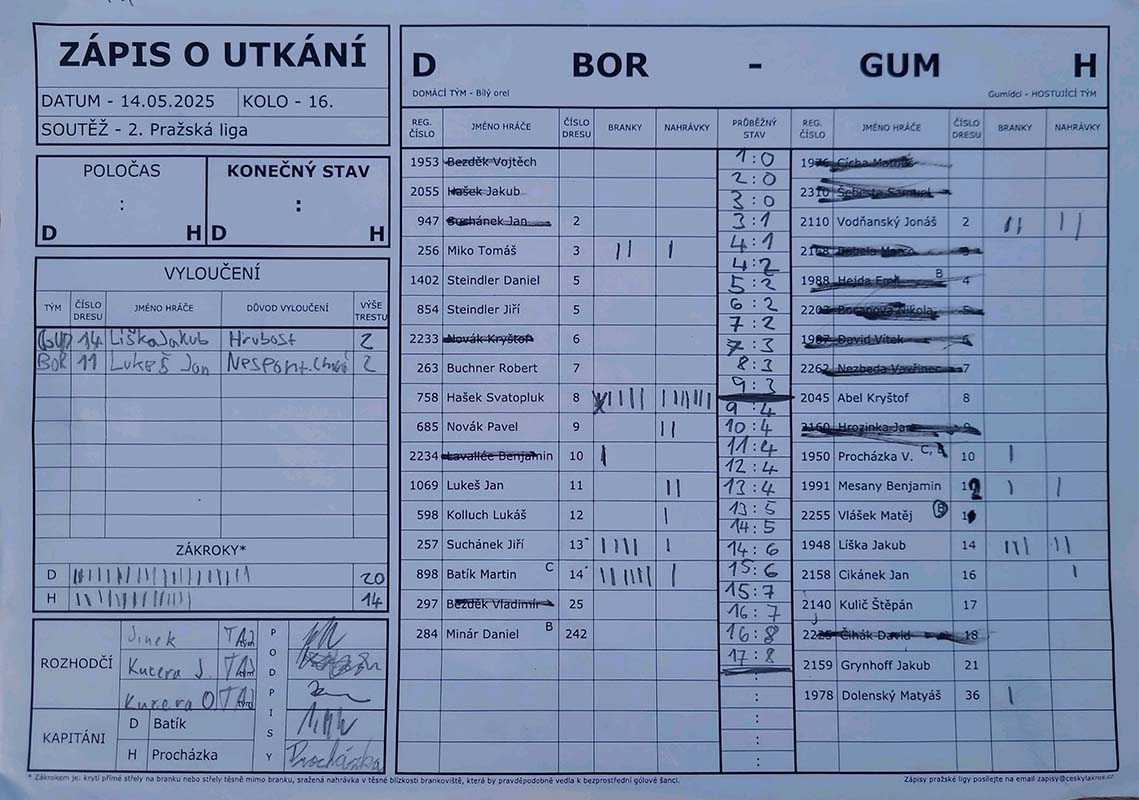 ZÁPIS O UTKÁNÍ
DATUM - 14.05.2025 KOLO - 16.
SOUTĚŽ - 2. Pražská liga
POLOČAS KONEČNÝ STAV
: :
D H D H
VYLOUČENÍ
TÝM ČÍSLO DRESU JMÉNO HRÁČE DŮVOD VYLOUČENÍ VÝŠE TRESTU
14 Líška Jakub Hrubost 2
BOR 11 Lukeš Jan Nesport. 2
ZÁKROKY*
D 20
H 14
ROZHODČÍ
Jinek
Kucera J.
Kucera O.
PODPISY
KAPITÁNI
D Batík
H Procházka
Procházka
D BOR - GUM H
DOMÁCÍ TÝM - Bílý orel Gumídci - HOSTUJÍCÍ TÝM
REG. ČÍSLO JMÉNO HRÁČE ČÍSLO DRESU BRANKY NAHRÁVKY PRŮBĚŽNÝ STAV REG. ČÍSLO JMÉNO HRÁČE ČÍSLO DRESU BRANKY NAHRÁVKY
1953 Bezděk Vojtěch
2055 Hašek Jakub
947 Suchánek Jan 2
256 Miko Tomáš 3 || |
1402 Steindler Daniel 5
854 Steindler Jiří 5
2233 Novák Kryštof 6
263 Buchner Robert 7
758 Hašek Svatopluk 8
685 Novák Pavel 9 ||
2234 Lavallée Benjamin 10 |
1069 Lukeš Jan 11 ||
598 Kolluch Lukáš 12 |
257 Suchánek Jiří 13 |||| |
898 Batík Martin C 14 |||||| |
297 Bezděk Vladimír 25
284 Minár Daniel B 242
1:0
2:0
3:0
3:1
4:1
4:2
5:2
6:2
7:2
7:3
8:3
9:3
9:4
10:4
11:4
12:4
13:4
13:5
14:5
14:6
15:6
15:7
16:7
16:8
17:8
:
:
:
:
1976 Cícha
2310 Šebesta Samuel
2110 Vodňanský Jonáš 2 || ||
1988 Hejda Emil B 4
Nikola
1987 David Vítek 6
2262 Nezbeda Vavřinec 7
2045 Abel Kryštof 8
2160 Hrozinka Jan 9
1950 Procházka V. C, 10 |
1991 Mesany Benjamin 12 | |
2255 Vlášek Matěj B
1948 Líška Jakub 14 ||| ||
2158 Cikánek Jan 16 |
2140 Kulič Štěpán 17
Čihák David 18
2159 Grynhoff Jakub 21
1978 Dolenský Matyáš 36 |
* Zákrokem je: krytí přímé střely na branku nebo střely těsně mimo branku, sražená nahrávka v těsné blízkosti brankoviště, která by pravděpodobně vedla k bezprostřední gólové šanci.
Zápisy pražské ligy posílejte na email zapisy@ceskylakros.cz